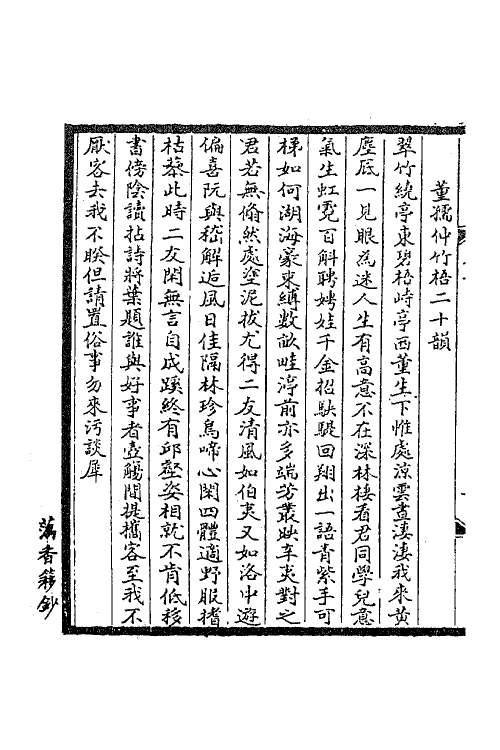 董孺仲竹梧二十韻
翠竹繞亭東碧梧峙亭西董生下惟處涼雲晝淒淒我來黃
塵底一見眼為迷人生有高意不在深林棲看君同學兒意
氣生虹霓百斛聘娉娃千金招駃騠回翔出一語青紫手可
梯如何湖海豪束縛數畝畦渟前亦多端芳叢映辛夷對之
君若無翛然處塗泥拔尤得二友清風如伯夷又如洛中遊
偏喜阮與嵇解逅風日佳隔林珍鳥啼心閑四體適野服搘
枯藜此時二友閑無言自成蹊終有邱壑姿相就不肯低移
書傍陰讀拈詩將葉題誰與好事者壺觴間提攜客至我不
厭客去我不睽但請置俗事勿來污談犀
藕香簃鈔